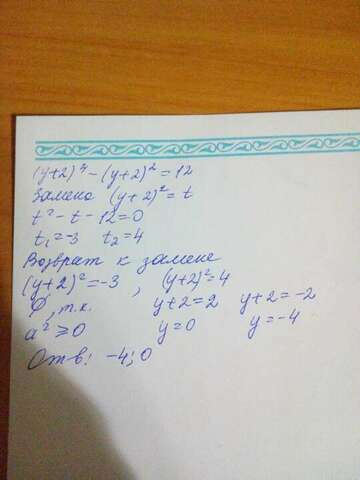 (y+2)⁴-(y+2)²=12
Замена (y+2)²=t
t²-t-12=0
t₁=-3 t₂=4
Возврат к замене
(y+2)²=-3, (y+2)²=4
∅, т.к. y+2=2 y+2=-2
a²≥0 y=0 y=-4
Отв: -4; 0